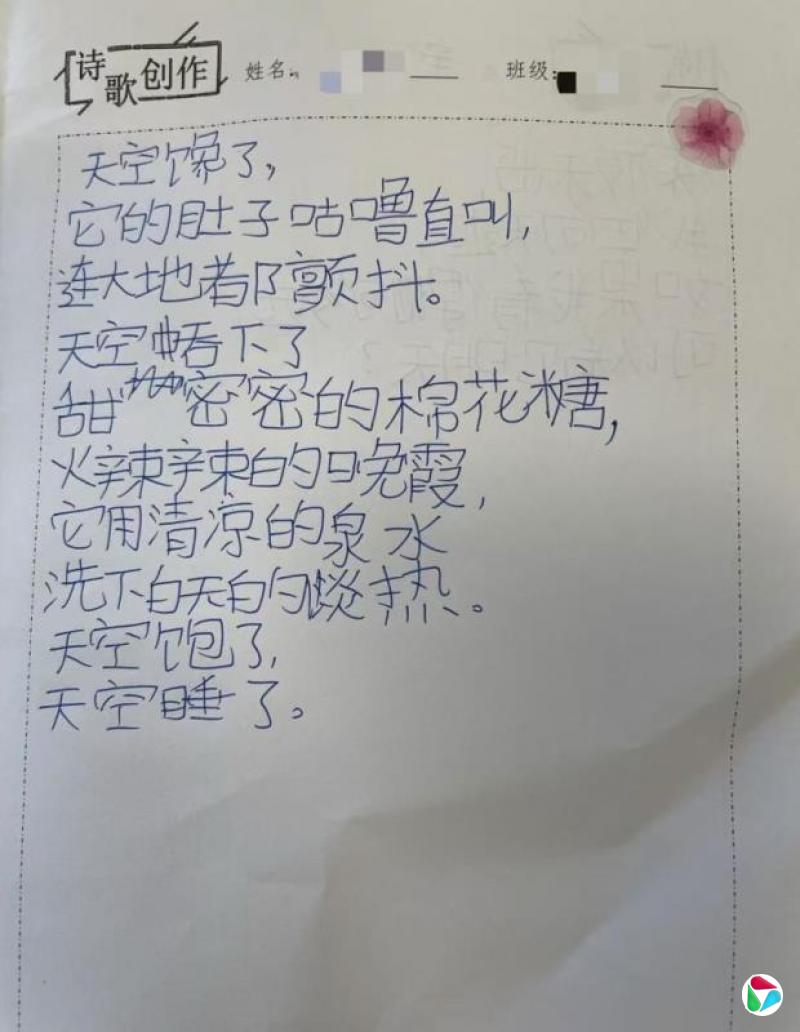 诗歌创作 姓名: 班级:
天空馋了,
它的肚子咕噜直叫,
连大地都颤抖。
天空舔下了
甜密密的棉花糖,
火辣辣的晚霞,
它用清凉的泉水
洗下白天的炎热。
天空饱了,
天空睡了。